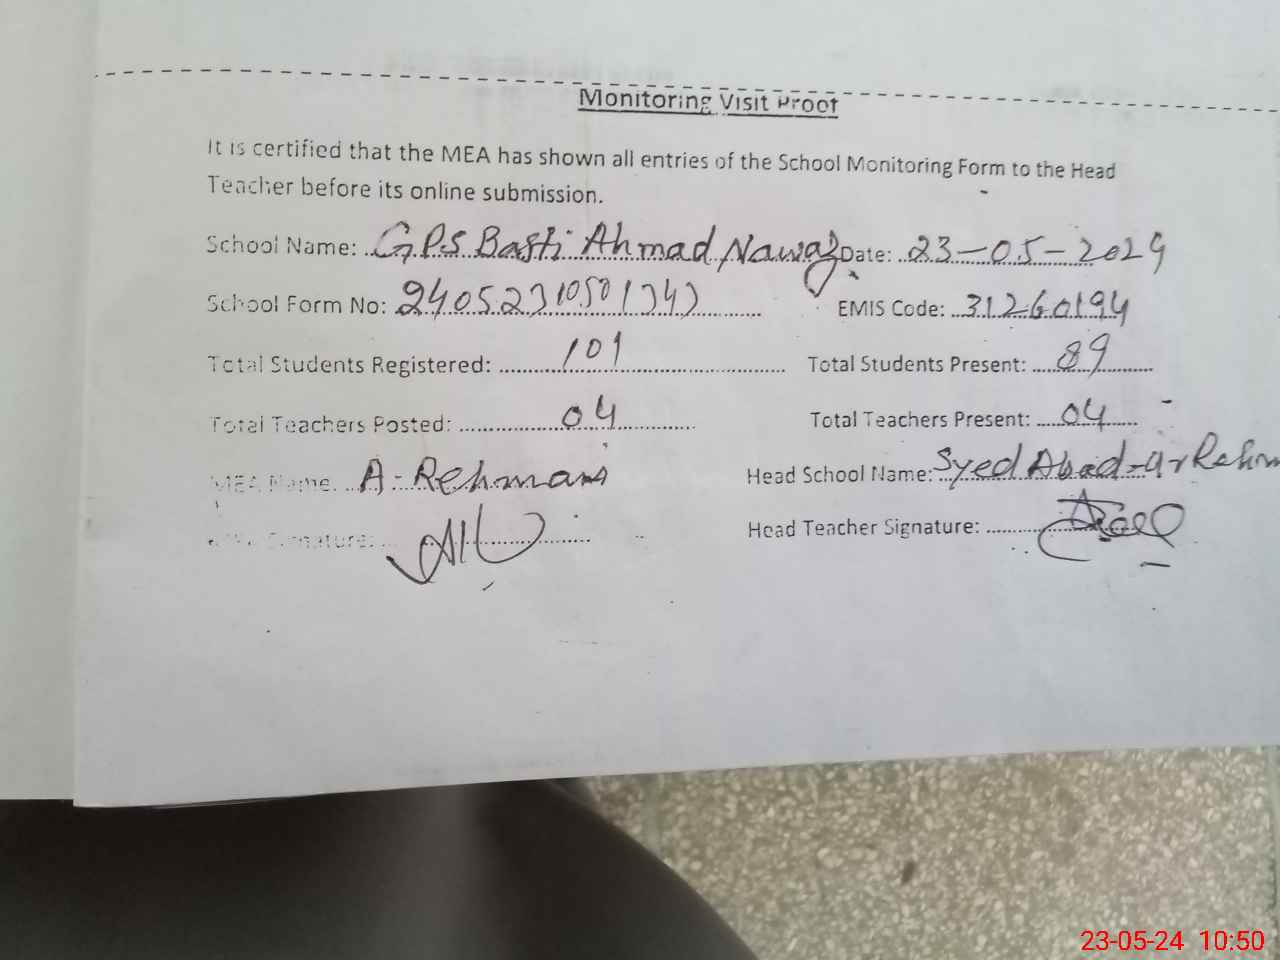 Monitoring Visit Proof
It is certified that the MEA has shown all entries of the School Monitoring Form to the Head
Teacher before its online submission.
School Name: G.P.S Basti Ahmad Nawaz Date: 23-05-2024
School Form No: 24052310501343 EMIS Code: 31260194
Total Students Registered: 101 Total Students Present: 89
Total Teachers Posted: 04 Total Teachers Present: 04
MEA Name: A-Rehman Head School Name: Syed Abad-ur Rehm
Signature: Head Teacher Signature:
23-05-24 10:50